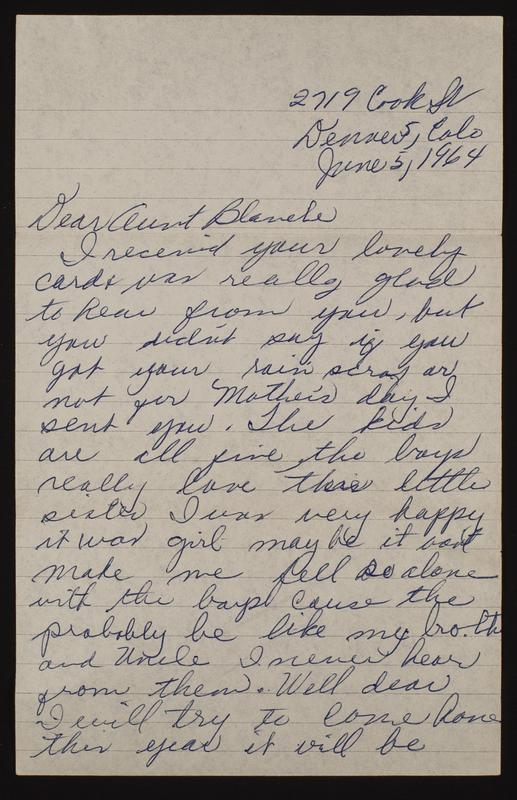 2719 Cook St
Denver 5, Colo
June 5, 1964
Dear Aunt Blanche
I received your lovely
card & was really glad
to hear from you, but
you didn't say if you
got your rain scraf or
not for Mother's day I
sent you. The kids
are all fine, the boys
really love their little
sister I was very happy
it was girl maybe it wont
make me fell so alone
with the boys cause the
probably be like my brother
and Uncle I never hear
from them. Well dear
I will try to come home
this year it will be